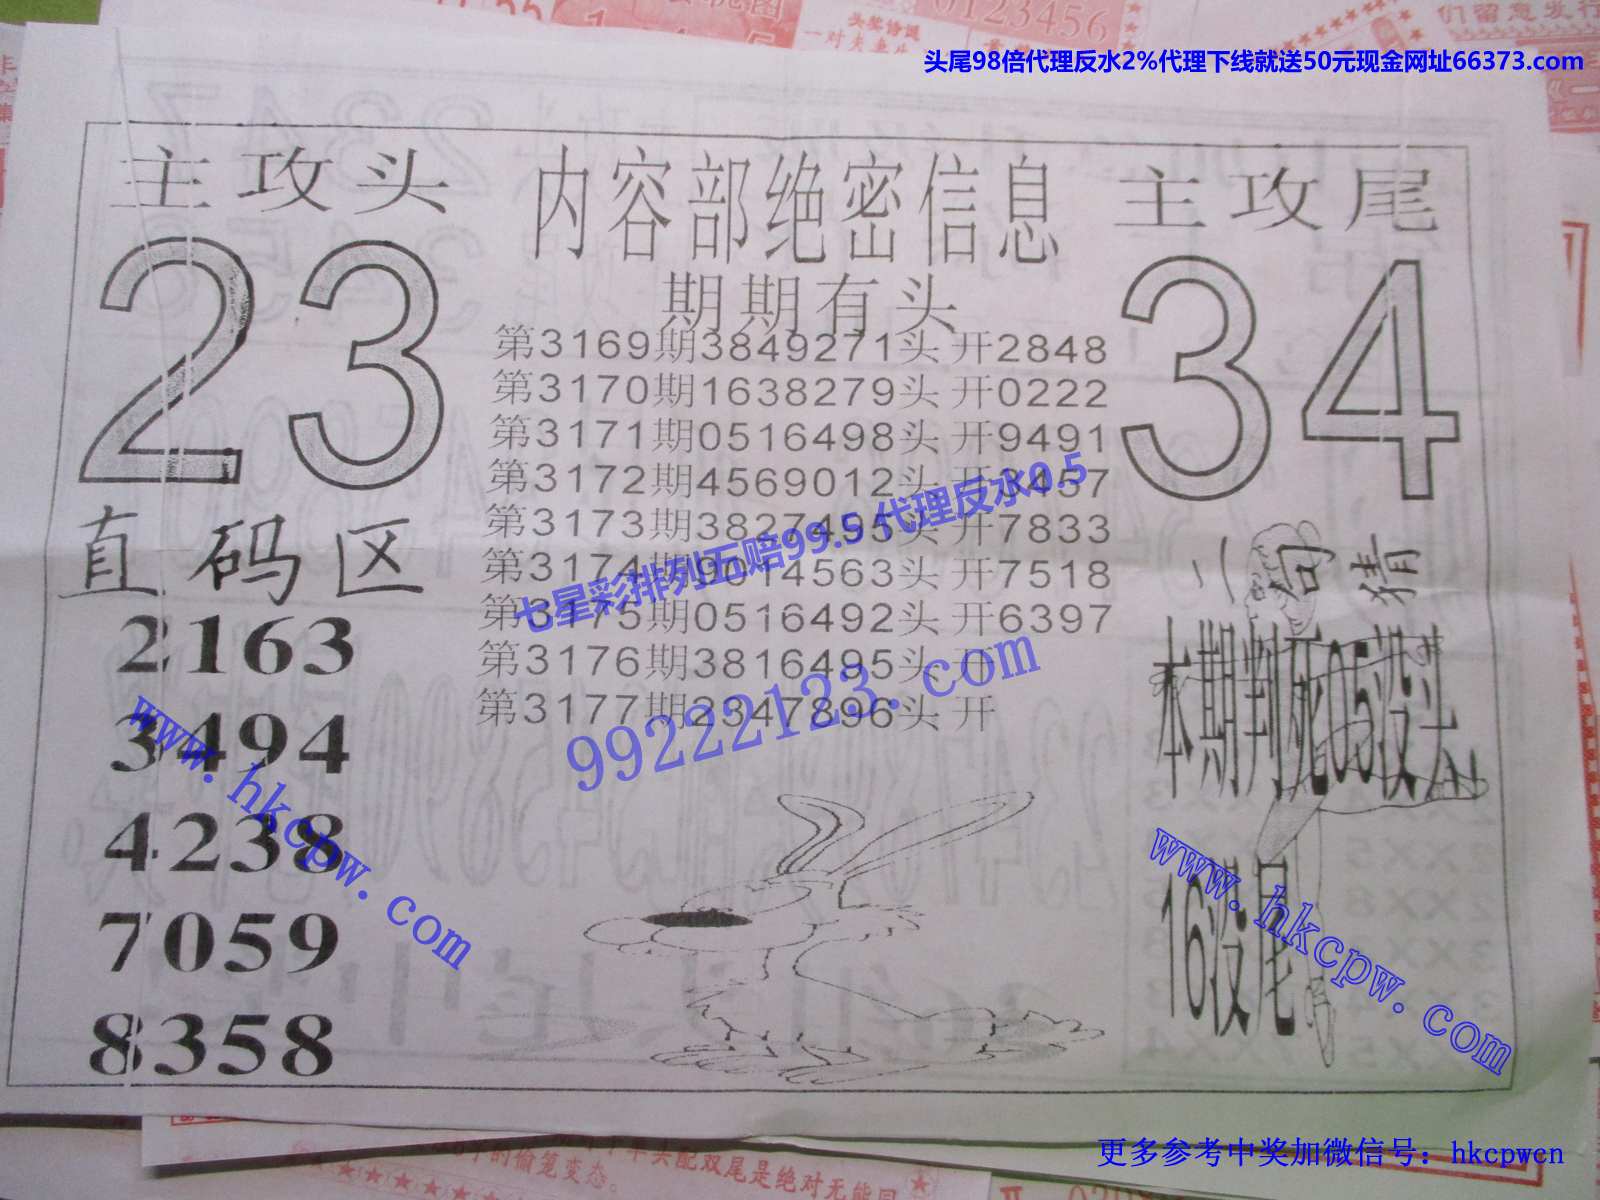 头尾98倍代理反水2%代理下线就送50元现金网址66373.com
0123456
头奖恰诞
主攻头
内容部绝密信息
主攻尾
23
34
期期有头
第3169期3849271头 开2848
第3170期1638279头 开0222
第3171期0516498头 开9491
第3172期4569012头 开3457
第3173期3827495头 开7833
第3174期9014563头 开7518
第3175期0516492头 开6397
第3176期3816495头 开
第3177期2347896头 开
七星彩排列五赔99.5代理反水0.5
99222123.com
直码区
2163
3494
4238
7059
8358
二句猜
本期判死05没头
16没尾
www.hkcpw.com
www.hkcpw.com
更多参考中奖加微信号：hkcpwcn